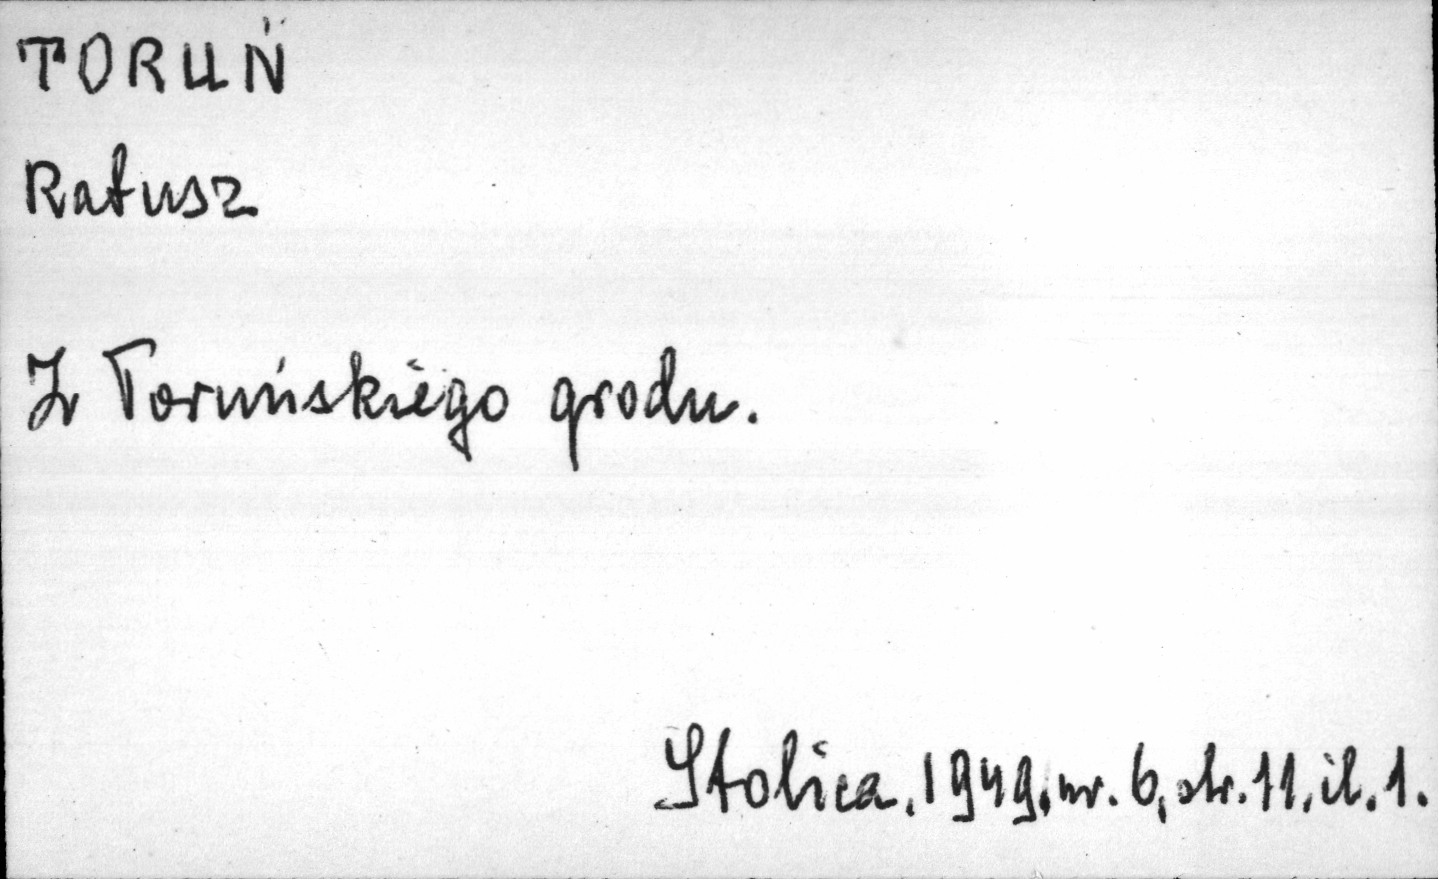 TORUŃ
Ratusz
Z Toruńskiego grodu.
Stolica. 1949, nr. 6, str. 11, il. 1.